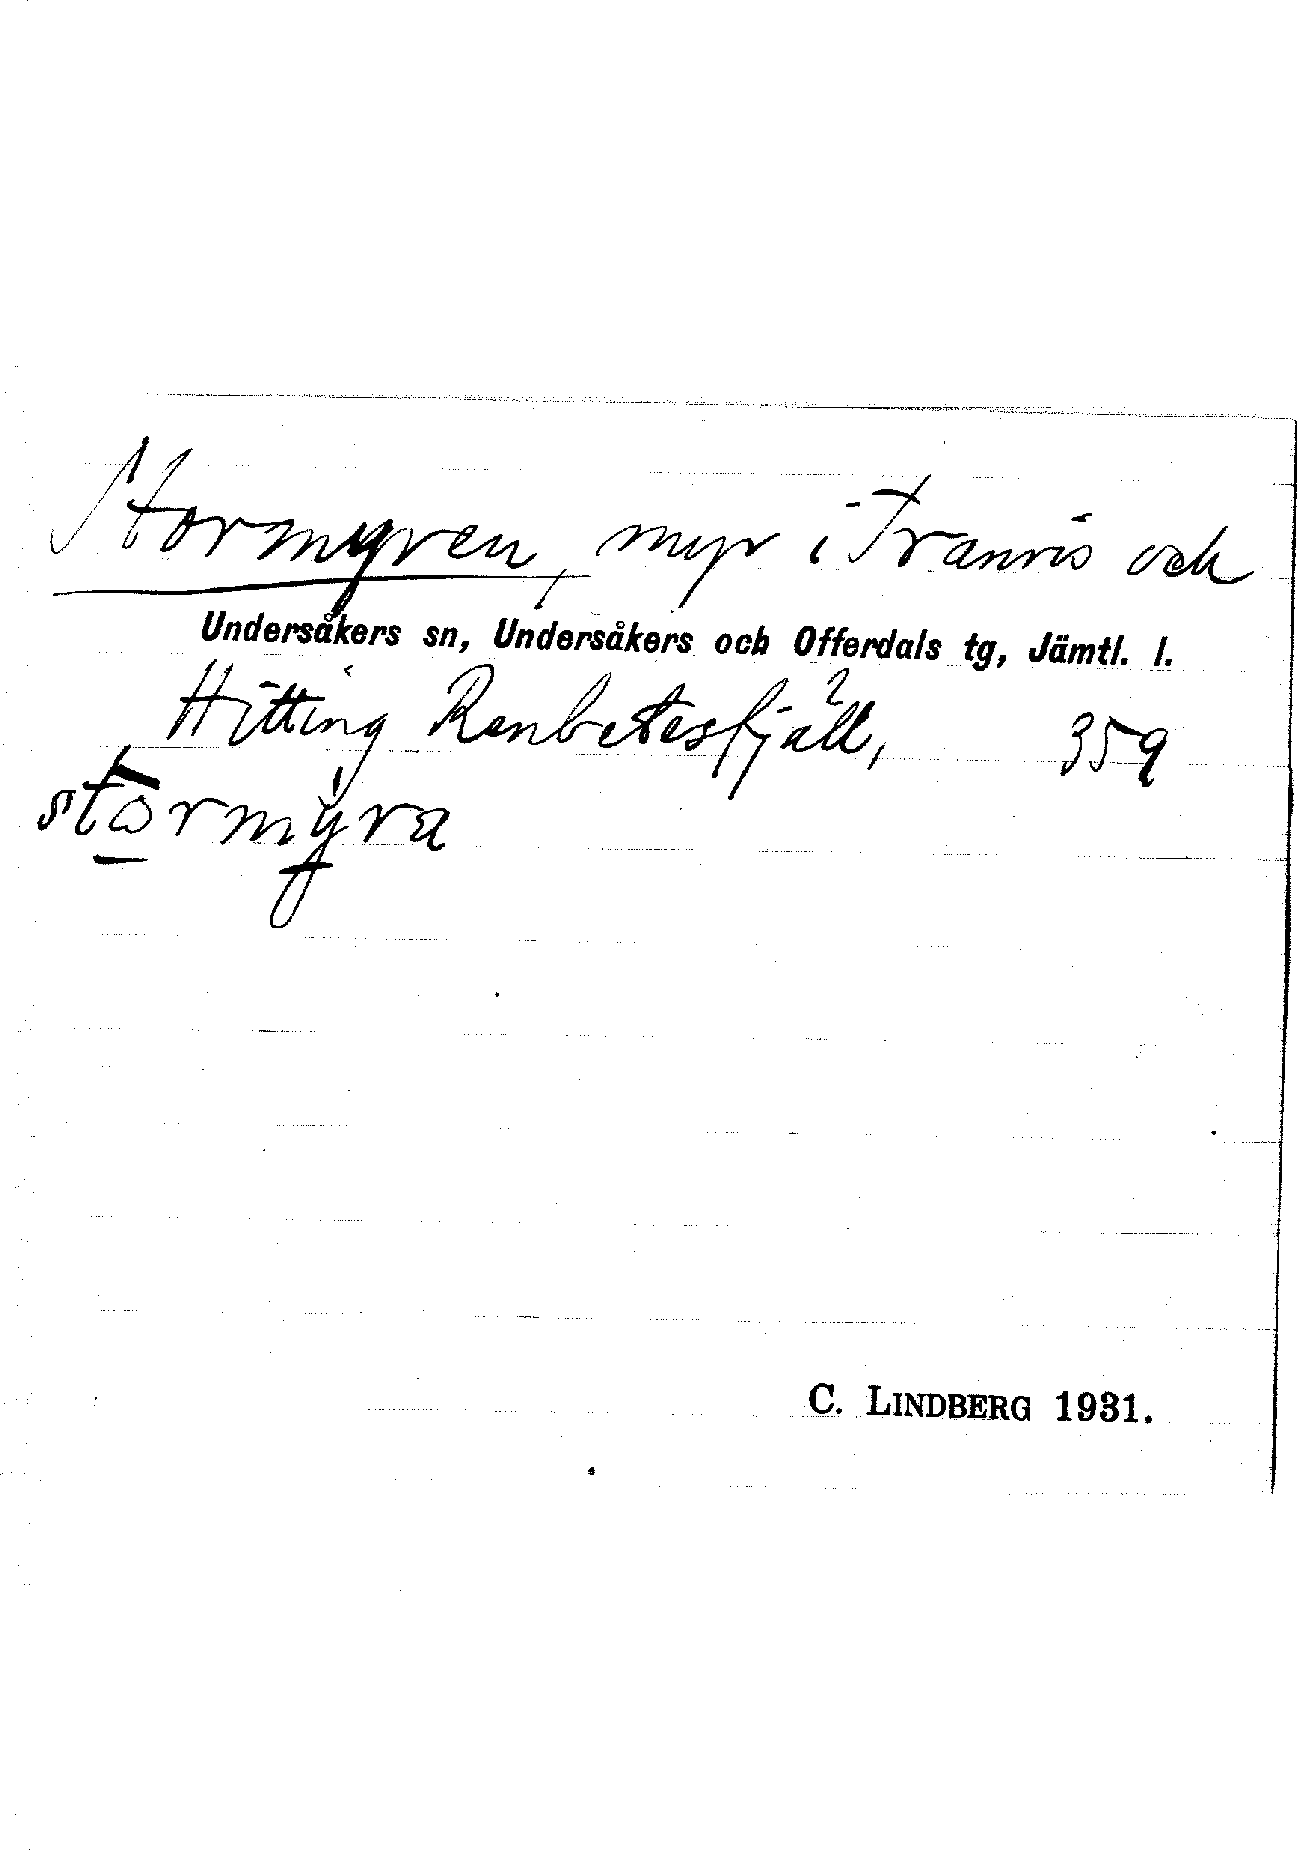 Stormyren, myr i Tranris och
Undersåkers sn, Undersåkers och Offerdals tg, Jämtl. l.
Hitting Renbetesfjäll, 359
stormyra
C. LINDBERG 1931.